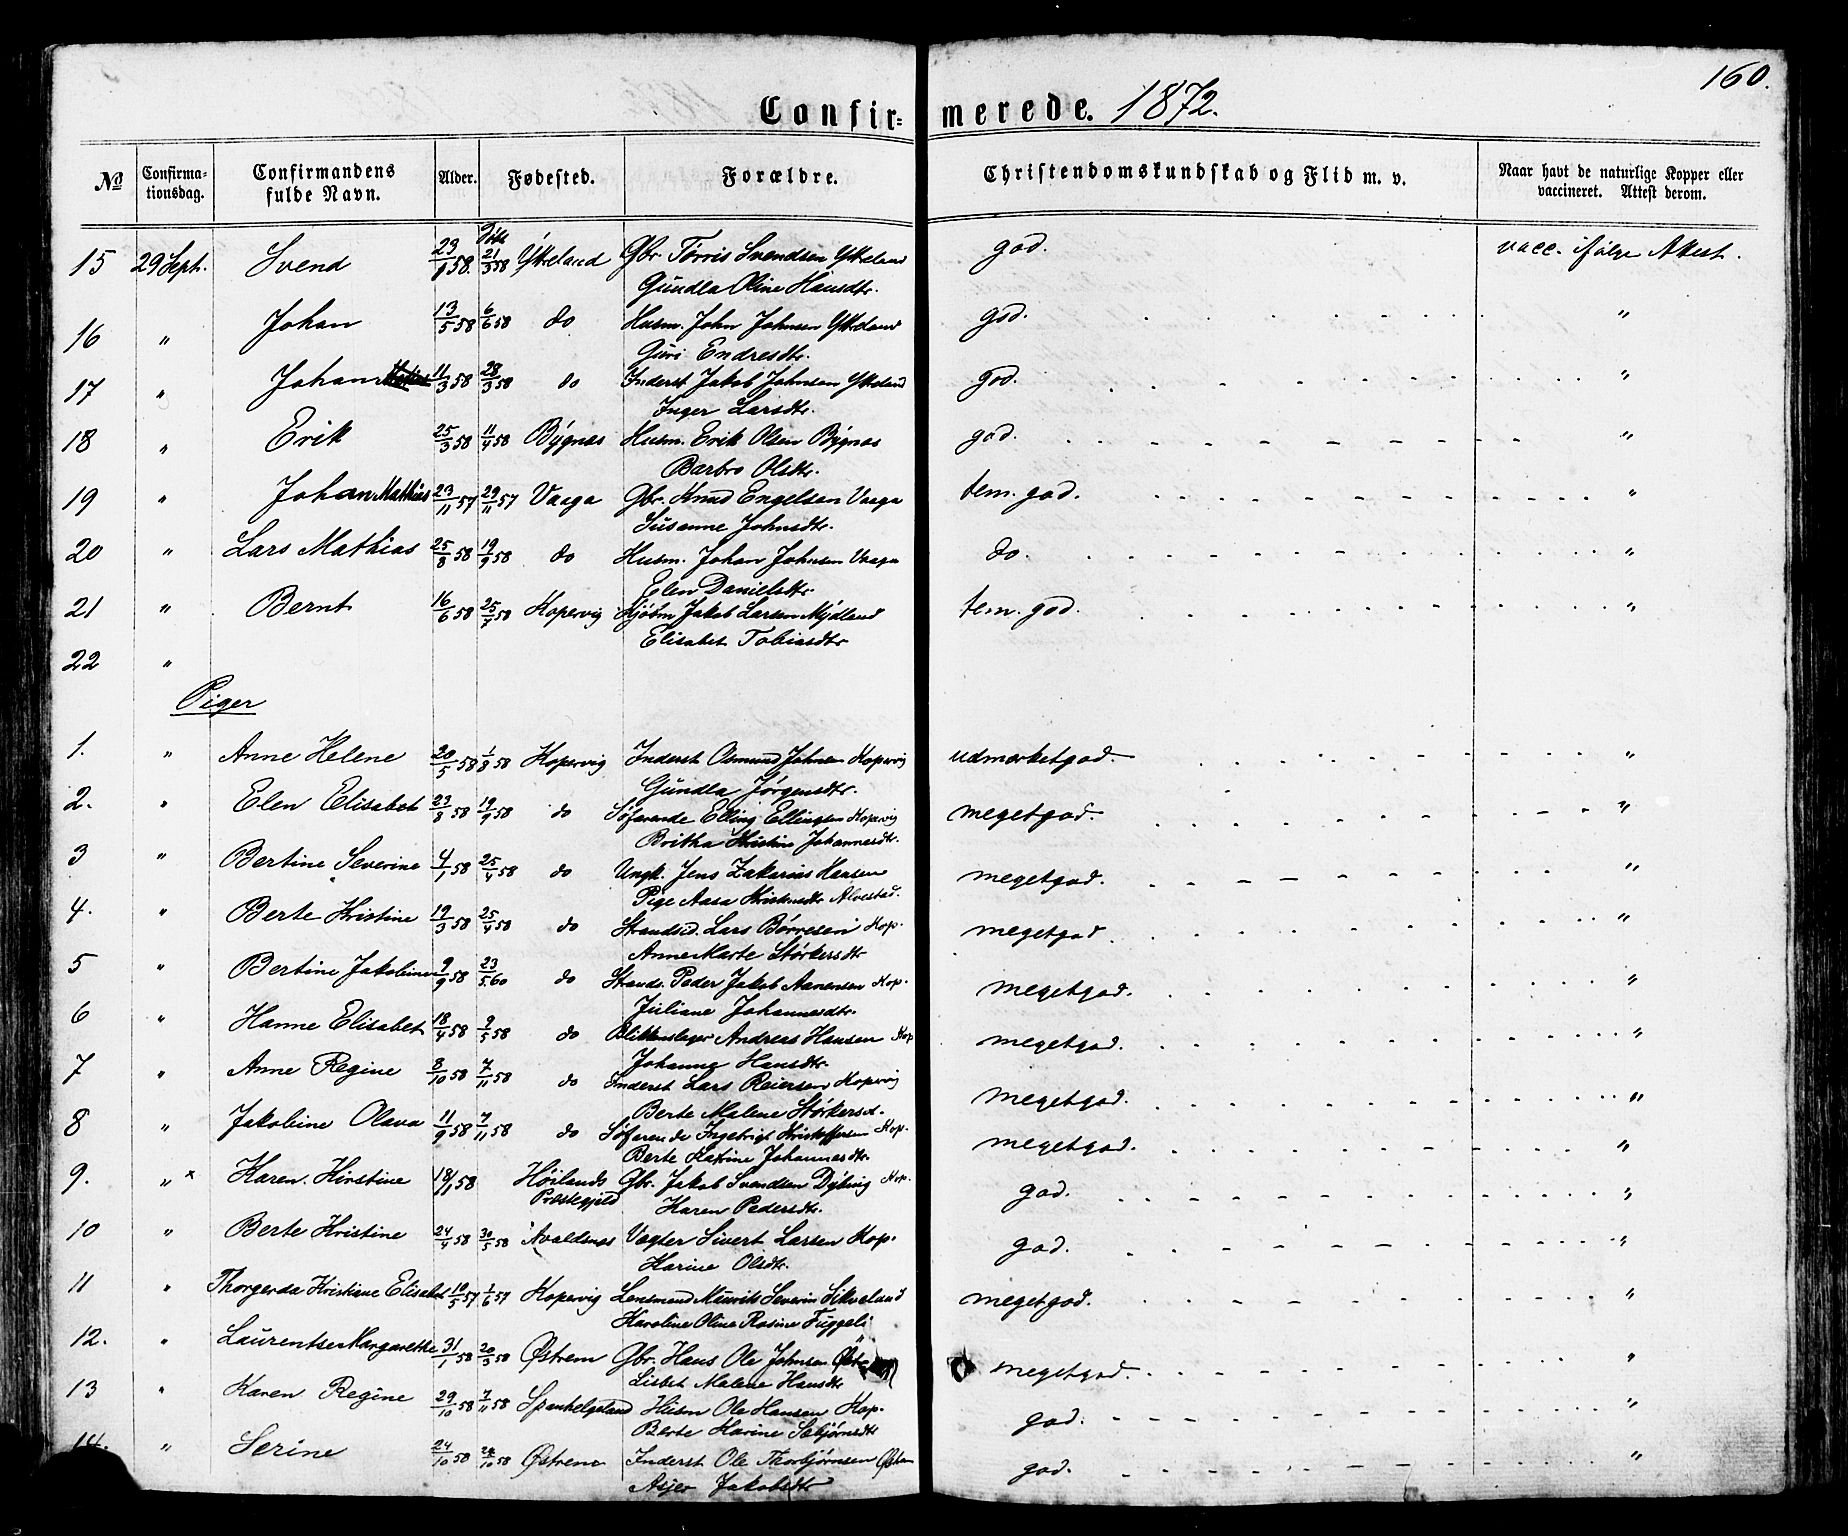 160.
Confir= merede. 1872.
No Confirma-tionsdag. Confirmandens fulde Navn. Alder. Fødested. Forældre. Christendomskundskab og Flid m. v. Naar havt de naturlige Kopper eller vaccineret. Attest derom.
Døbt
15 29 Sept. Svend 23/1 58. 21/3 58 Ytreland Gbr. Tørris Svendsen Ytreland god. vacc. ifølge Attest.
Gundla Oline Hansdtr.
16 " Johan 13/5 58 6/6 58 do Husm. John Johnsen Ytreland god. "
Guri Endresdtr.
17 " Johan 11/3 58 28/3 58 do Inderst Jakob Johnsen Ytreland god. "
Inger Larsdtr.
18 " Erik 25/3 58 11/4 58 Bygnes Husm. Erik Olsen Bygnes god. "
Barbro Olsdtr.
19 " Johan Mathias 23/11 57 29/11 57 Vaaga Gbr. Knud Engelsen Vaaga tem. god. "
Susanne Johnsdtr.
20 " Lars Mathias 25/8 58 19/9 58 do Husm. Johan Johnsen Vaaga do. "
Elen Danielsdtr
21 " Bernt 16/6 58 25/7 58 Kopervig Kjøbm Jakob Larsen Mydland tem. god. "
Elisabet Tobiasdtr
22 "
Piger
1. " Anne Helene 20/5 58 1/8 58 Kopervig Inderst Osmund Johnsen Kopervig udmerket god. "
Gundla Jørgensdtr.
2. " Elen Elisabet 23/8 58 19/9 58 do Søfarende Elling Ellingsen Kopervig meget god. "
Britha Kristine Johannesdtr.
3 " Bertine Severine 4/1 58 25/4 58 do Ungk. Jens Zakarias Hansen meget god. "
Pige Aasa Kristensdtr Alvestad.
4. " Berte Kristine 19/3 58 25/4 58 do Strandsid. Lars Børresen Kop. meget god. "
Anne Marte Størkersdtr
5 " Bertine Jakobine 9/9 58 23/5 60 do Strands. Peder Jakob Aanensen Kop. meget god. "
Juliane Johannesdtr.
6 " Hanne Elisabet 18/4 58 9/5 58 do Blikkenslager Andreas Hansen Kop meget god. "
Johanne Hansdtr.
7 " Anne Regine 8/10 58 7/11 58 do Inderst Lars Reiersen Kopervig meget god. "
Berte Malene Størkersd.
8 " Jakobine Olava 11/9 58 7/11 58 do Søfarende Ingebrigt Kristoffersen Kop. meget god. "
Berte Katrine Johannesdtr.
9. " x Karen Kirstine 18/1 58 Høilands Præstegjeld Gbr. Jakob Svendsen Dybing Kop. god. "
Karen Pedersdtr.
10 " Berte Kristine 24/4 58 30/5 58 Avaldsnes Vægter Sivert Larsen Kop. god. "
Karine Olsdtr.
11 " Thorgerda Kristiane Elisabet 10/5 57 1/6 57 Kopervig Lensmand Maurits Severin Sikveland meget god. "
Karoline Oline Rosine Fuggeli
12. " Laurentse Margarethe 31/1 58 20/3 58 Østrem Gbr. Hans Ole Johnsen meget god. "
Lisbet Malene Hansdtr
13 " Karen Regine 29/10 58 7/11 58 Spanhelgeland Husm Ole Hansen Kop. god. "
Berte Karine Sebjørnsdtr
14. " Serine 24/10 58 Østrem Inderst Ole Thorbjørnsen Østrem god. "
Jakobsdtr